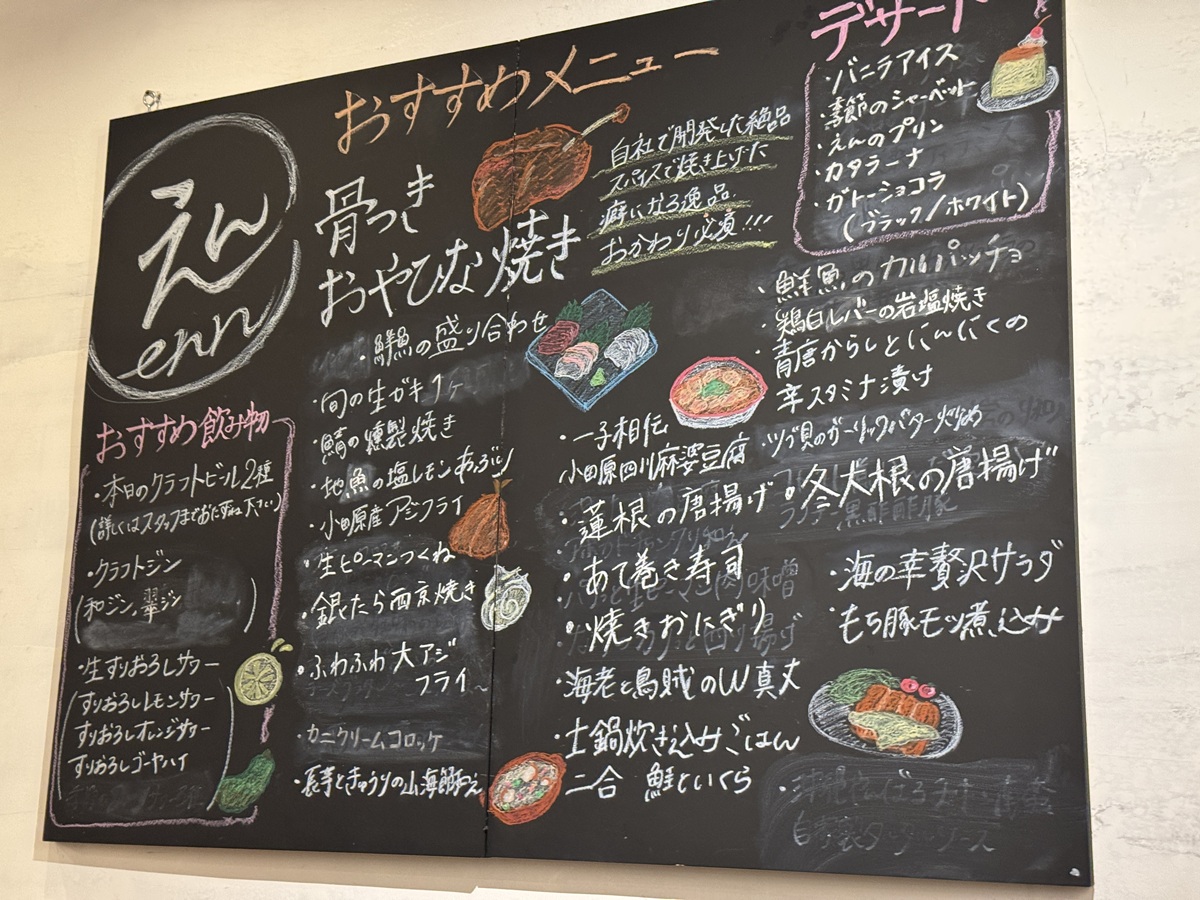 えん
enn
おすすめ飲み物
・本日のクラフトビール2種
(詳しくはスタッフまでおたずね下さい)
・クラフトジン
(和ジン,翠ジン)
・生すりおろしサワー
すりおろしレモンサワー
すりおろしオレンジサワー
すりおろしゴーヤハイ
おすすめメニュー
骨つき
おやひな焼き
自社で開発した絶品
スパイスで焼き上げた
癖になる逸品
おかわり必須!!!
・鮮魚の盛り合わせ
・旬の生ガキ1ヶ
・鯖の燻製焼き
・地魚の塩レモンあぶり
・小田原産アジフライ
・生ピーマンつくね
・銀たら西京焼き
・ふわふわ大アジ
フライ
・カニクリームコロッケ
・長芋ときゅうりの山海
・一子相伝
小田原四川麻婆豆腐
・蓮根の唐揚げ
・あて巻き寿司
・焼きおにぎり
・海老と烏賊のW真丈
・土鍋炊き込みごはん
二合 鮭といくら
デザート
・バニラアイス
・季節のシャーベット
・えんのプリン
・カタラーナ
・ガトーショコラ
(ブラック/ホワイト)
・鮮魚のカルパッチョ
・鶏白レバーの岩塩焼き
・青唐からしとにんにくの
辛スタミナ漬け
ツブ貝のガーリックバター炒め
・冬大根の唐揚げ
・海の幸贅沢サラダ
・もち豚モツ煮込み